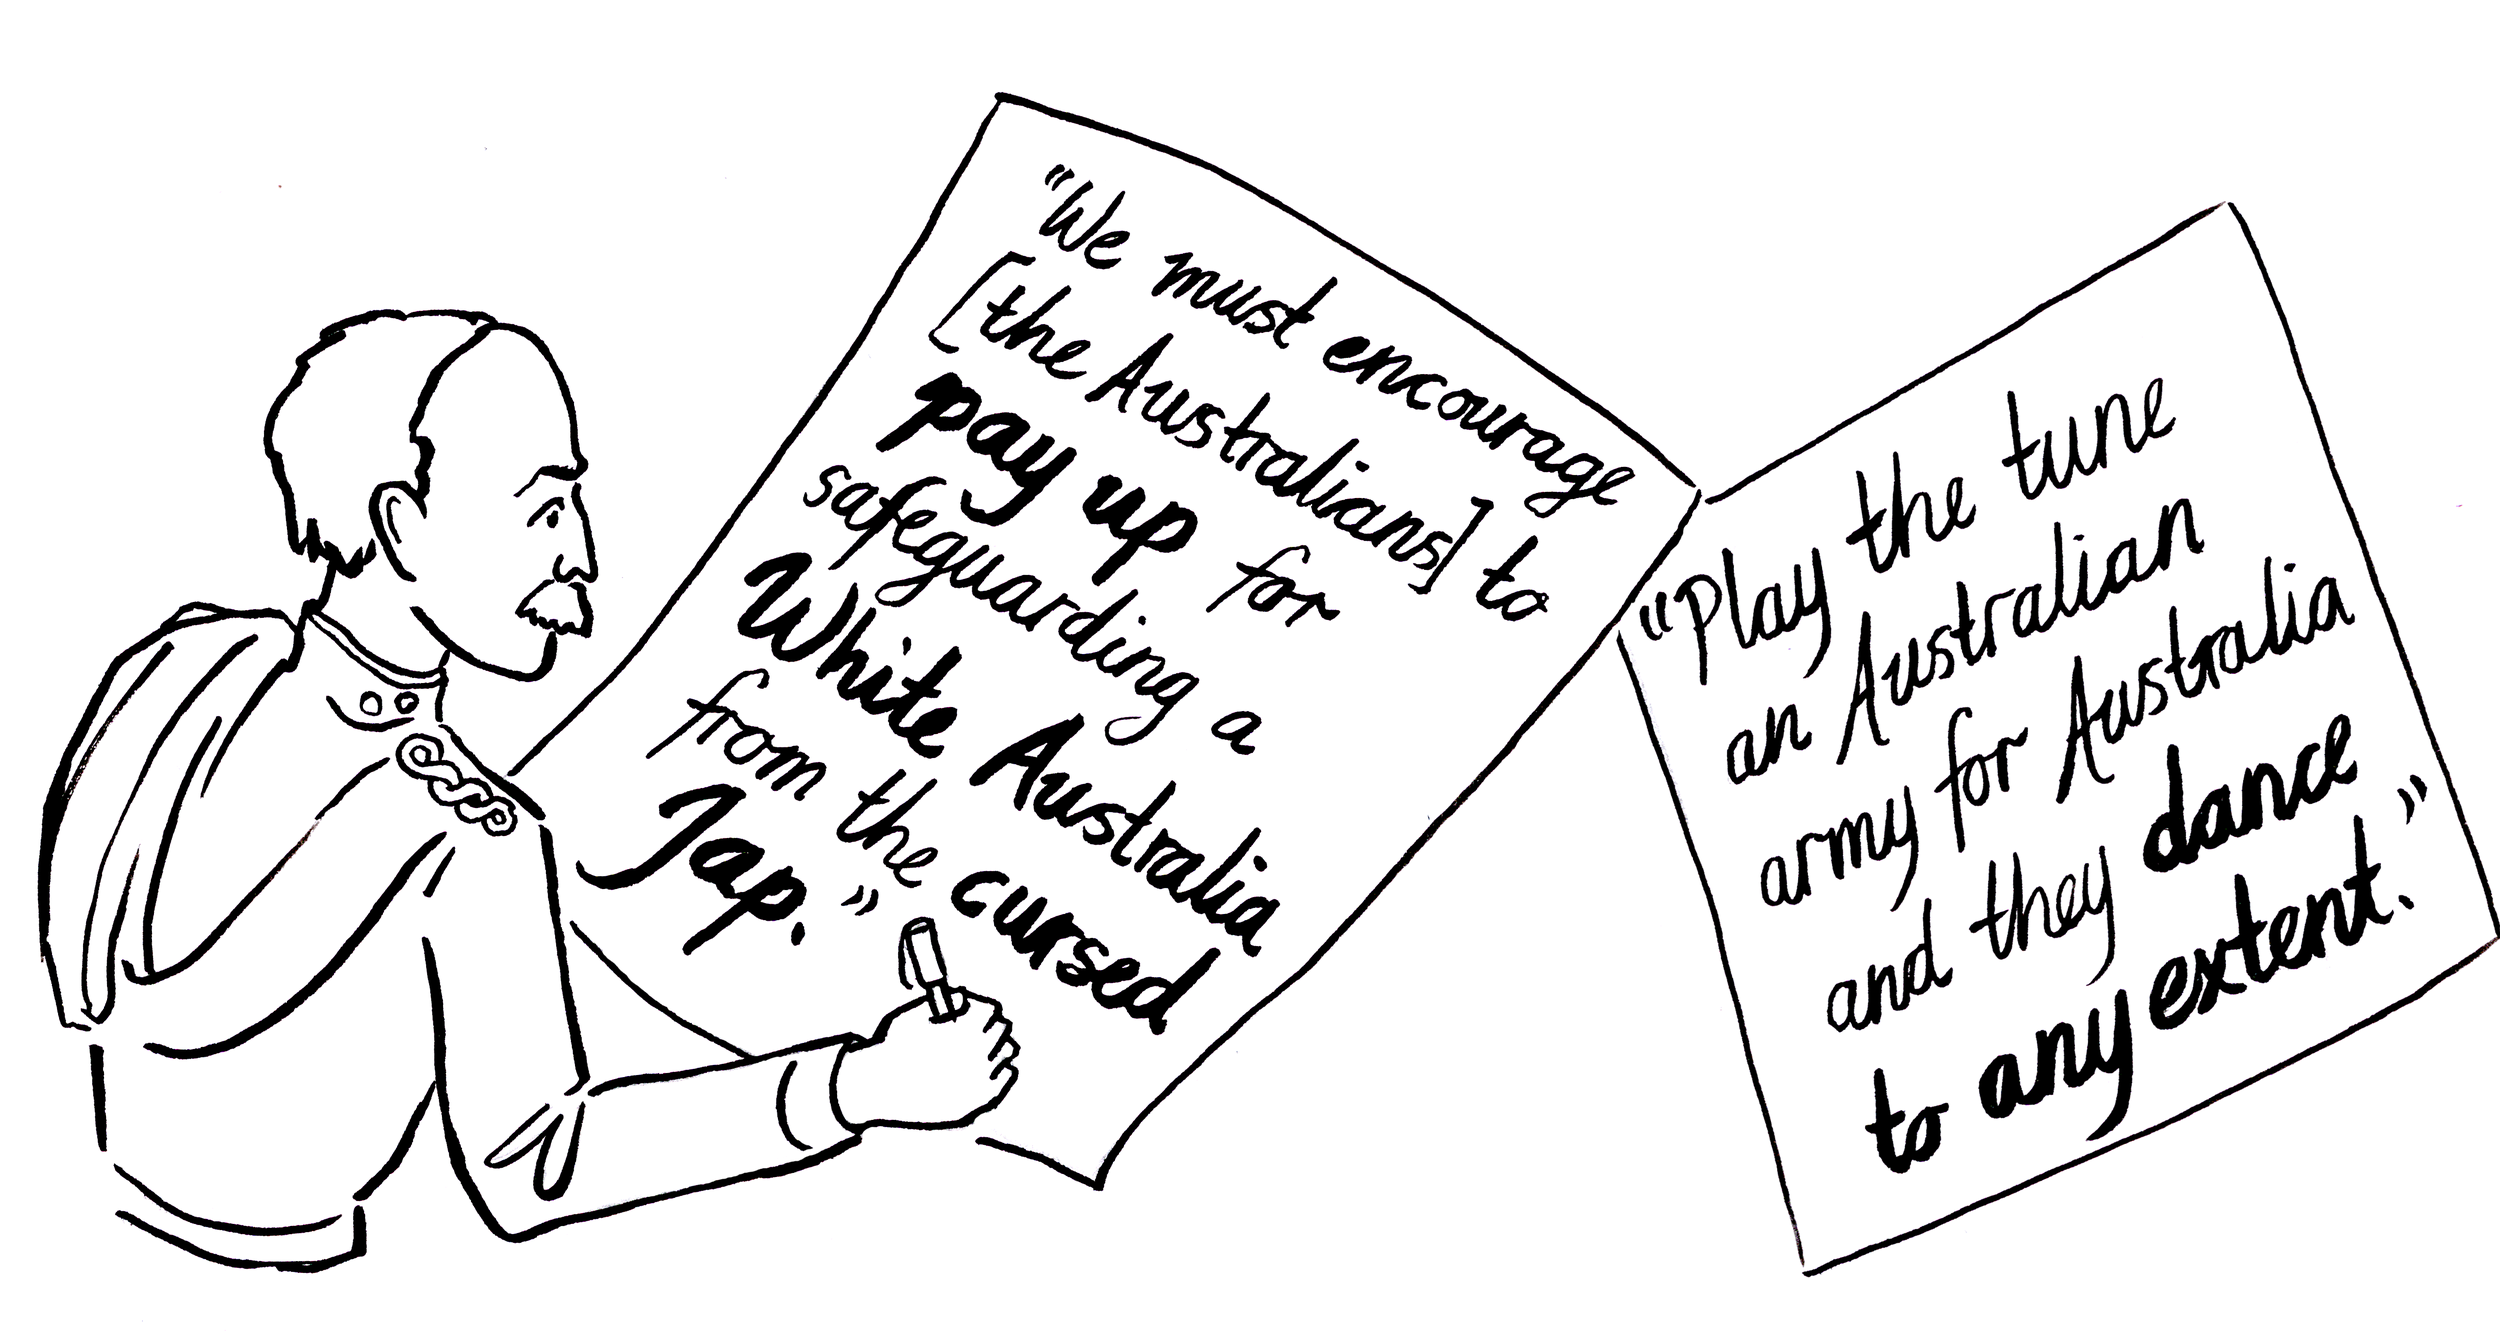 "We must encourage
[the Australians] to
pay up for
safegarding a
White Australia
from the cursed
Jap."
"play the tune
an Australian
army for Australia
and they dance
to any extent."